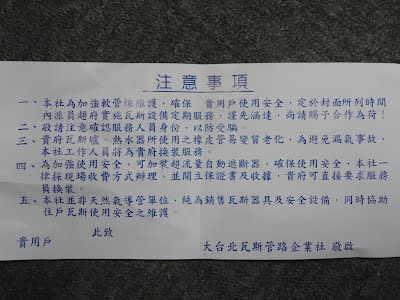 注意事項
一、本社為加強軟管線維護，確保　貴用戶使用安全，定於封面所列時間
內派員趨府實施瓦斯設備定期服務，謹先函達，尚請賜予合作為荷！
二、敬請注意確認服務人員身份，以防受騙。
三、貴府瓦斯爐、熱水器所使用之橡皮管易變質老化，為避免漏氣事故，
本社工作人員將為貴府換裝服務。
四、為加強使用安全，可加裝超流量自動遮斷器，確保使用安全，本社一
律採現場收費方式辦理，並開立保證書及收據，貴府可直接要求服務
員換裝。
五、本社並非天然氣導管單位，純為銷售瓦斯器具及安全設備，同時協助
住戶瓦斯使用安全之維護。
此致
貴用戶
大台北瓦斯管路企業社 敬啟